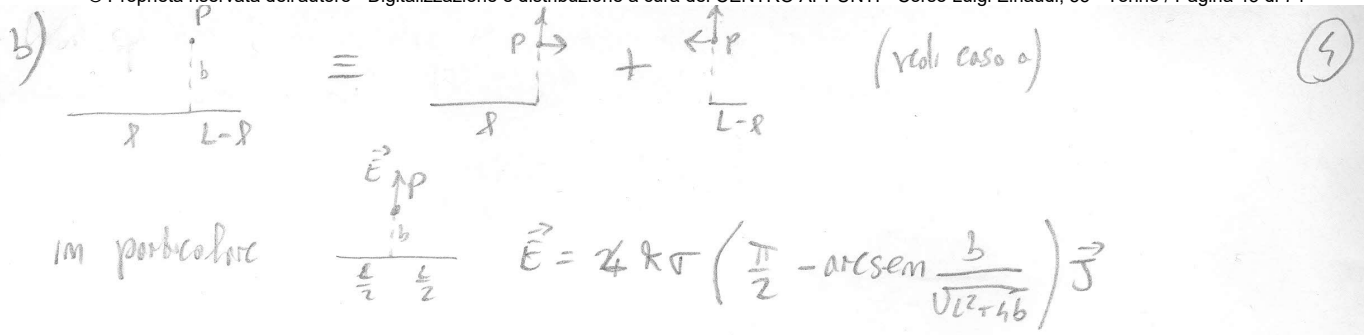 © Proprietà riservata dell'autore - Digitalizzazione e distribuzione a cura del CENTRO APPUNTI - Corso Luigi Einaudi, 55 - Torino / Pagina 43 di 74
b) P b ℓ L-ℓ ≡ P ℓ + P L-ℓ (vedi caso a) 4
in particolare E⃗ P b L/2 L/2 E⃗ = 4 k σ ( π/2 - arcsen b/√(L²+4b) ) J⃗